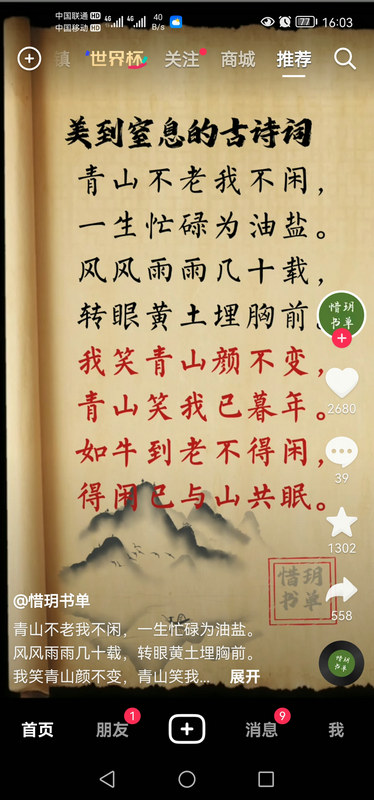 中国联通 HD 4G 4G 40 B/s 77 16:03
中国移动 HD
镇 世界杯 关注 商城 推荐
美到窒息的古诗词
青山不老我不闲，
一生忙碌为油盐。
风风雨雨几十载，
转眼黄土埋胸前。
我笑青山颜不变，
青山笑我已暮年。
如牛到老不得闲，
得闲已与山共眠。
惜玥
书单
2680
39
1302
558
惜玥
书单
@惜玥书单
青山不老我不闲，一生忙碌为油盐。
风风雨雨几十载，转眼黄土埋胸前。
我笑青山颜不变，青山笑我... 展开
惜玥
书单
首页 朋友 1 消息 9 我